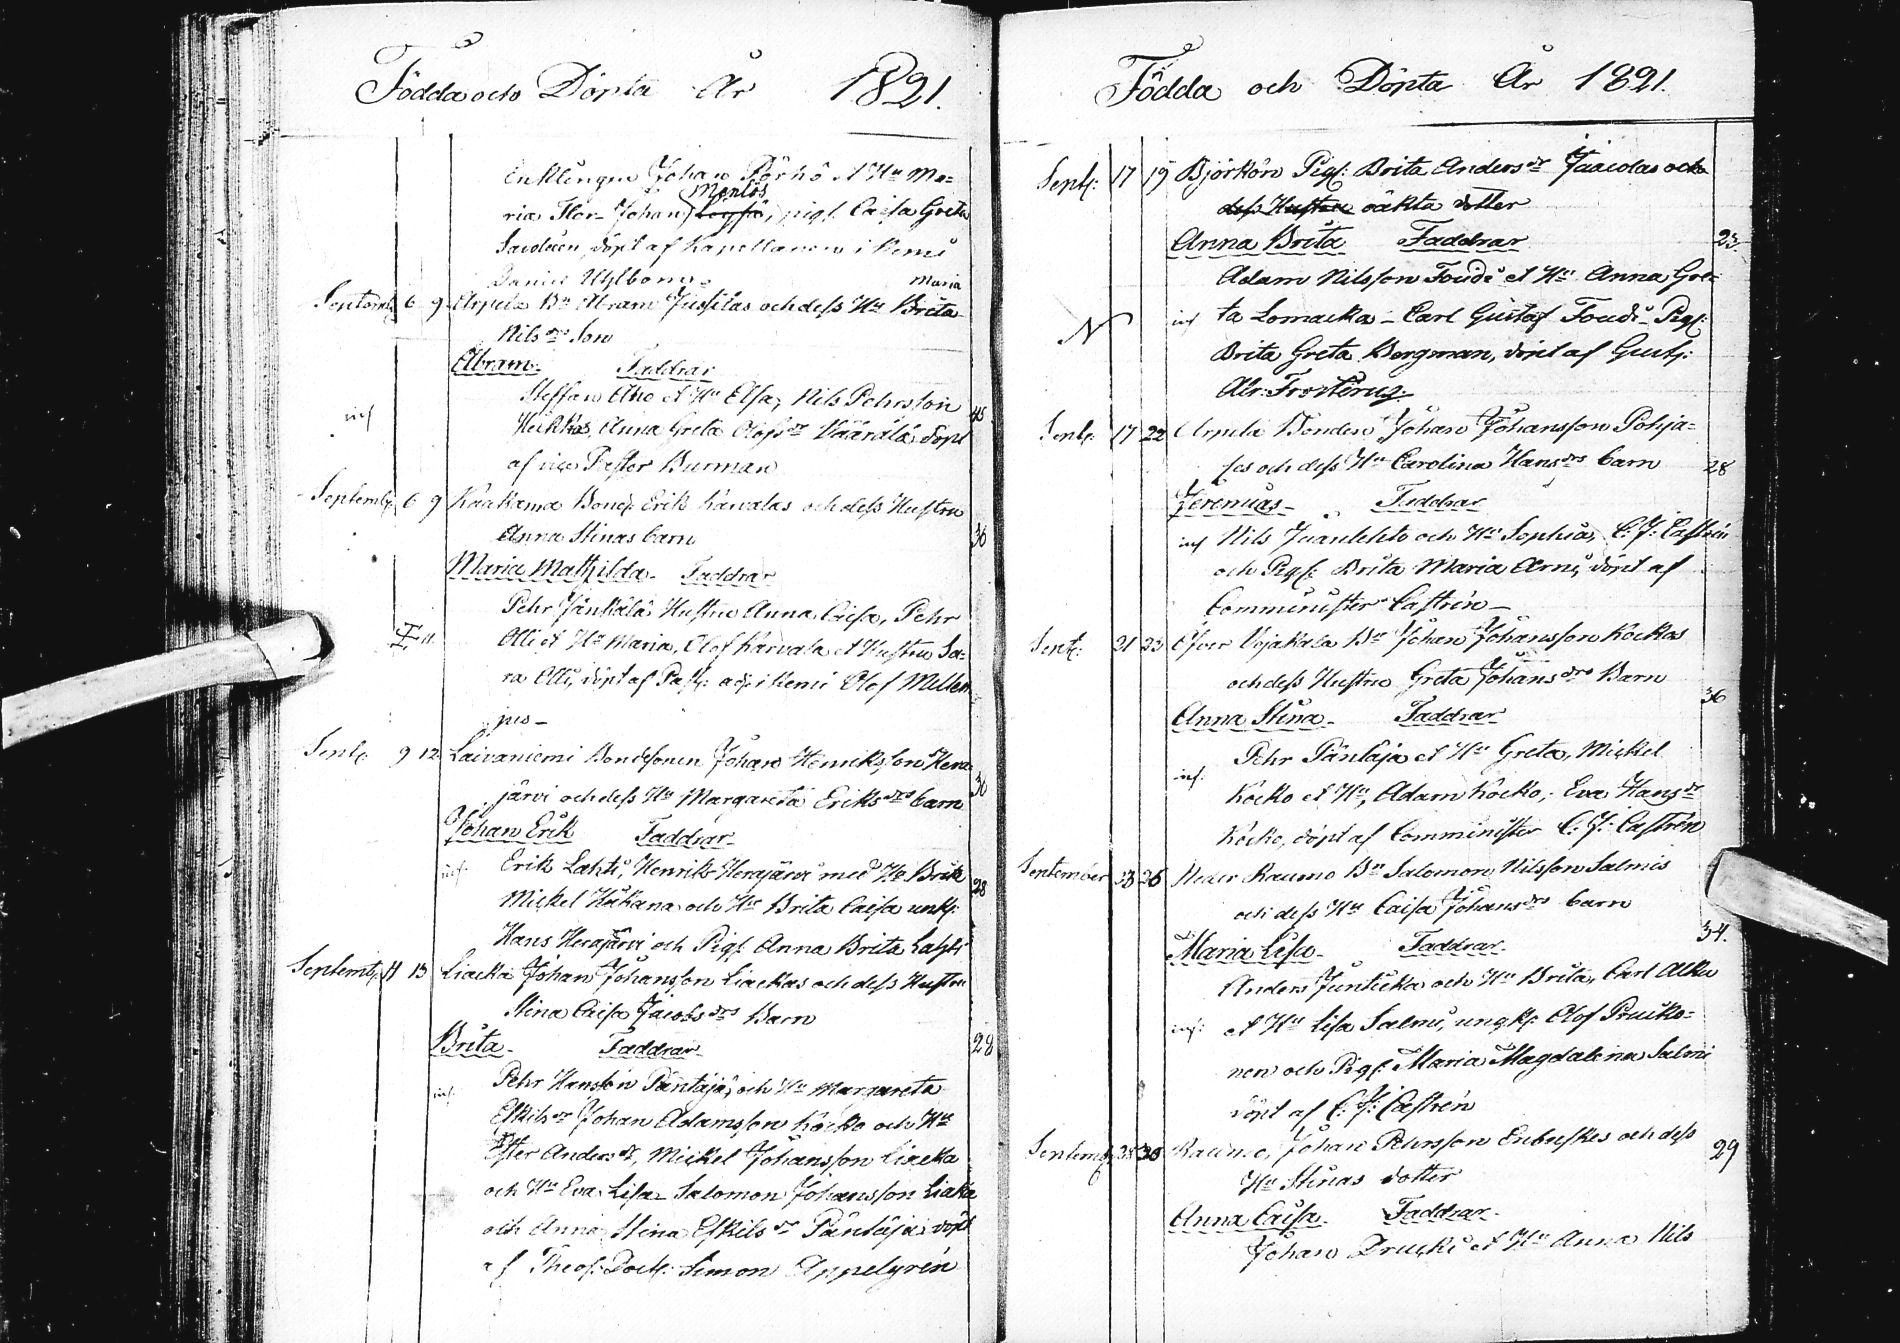 Födda och Döpta År 1821.
Enklingen Johan Pörhö et Hu Ma=
Menlös
ria Flor- Johan pigf. Caisa Greta
döpt af Kapellanen i Kemi
Daniel Uhlbom.
Maria
Septemb: 6 9 Arpela Bn Abram Jussilas och dess Hu Brita
Nilsdrs Son
Abram. Faddrar
Steffan Aho et Hu Elsa, Nils Pehrsson 45
inf Heikkas, Anna Greta Olofsdr Väärälä döpt
af vice Pastor Burman
Septemb: 6 9 Kaakama Bond: Erik Karvalas och dess Hustru
Anna Stinas barn 36
Maria Mathilda. Faddrar
Pehr Jänkälä Hustru Anna Caisa, Pehr
Olli et Hu Maria, Olof Karvala et Hustru Sa=
ra Olli, döpt af Past: adj: i Kemi Olof Mellen
jus-
Septe: 9 12 Laivaniemi Bondesonen Johan Henriksson Hera
järvi och dess Hu Margareta Eriksdrs barn 30
Johan Erik Faddrar
inf: Erik Lahti, Henrik Herajärvi med Hu Brita 28
Mickel Hakana och Hu Brita Caisa unkf:
Hans Herajärvi och Pigf. Anna Brita Lahti
Septemb: 11 13 Liacka Johan Johansson Liackas och dess Hustru
Stina Caisa Jacobsdrs Barn
Brita. Faddrar 28
inf: Pehr Hansson Päntäjä, och Hu Margareta
Eskilsdr Johan Adamsson Kocko och Hu
Ester Andersdr, Mickel Johansson Liacka
och Hu Eva Lisa- Salomon Johansson Liaka
och Anna Stina Eskilsdr Päntäjä, döpt
af Theol: Doct: Simon Appelgrén
Födda och Döpta År 1821.
Septe: 17 19 Björkön Pigf: Brita Andersdr Jaacolas och
dess Hustru oäkta dotter
Anna Brita Faddrar 23.
Adam Nilsson Foudi et Hu Anna Gre=
N inf ta Lomacka - Carl Gustaf Foudi- Pigf:
Brita Greta Bergman, döpt af Gustf:
Adr: Frosterus.
Septe: 17 22 Arpela Bonden Johan Johansson Pohja=
les och dess Hu Carolina Hansdrs barn 28
Jeremias- Faddrar
inf Nils Juanlehto och Hu Sophia, C: J: Castrén
och Pigf: Brita Maria Arni, döpt af
Comminister Castrén-
Septe: 21 23 Öfver Vojakala Bn Johan Johansson Kockos
och dess Hustru Greta Johansdrs Barn
36
Anna Stina- Faddrar
Pehr Päntäjä et Hu Greta, Mickel
inf: Kocko et Hu, Adam Kocko, Eva Hansdr
Kocko, döpt af Comminister C: J: Castrén
September 23 26 Neder Raumo Bn Salomon Nilsson Salmis
och dess Hu Caisa Johansdrs barn
34.
Maria Lisa- Faddrar.
Anders Junticka och Hu Brita, Carl Alku
inf: et Hu Lisa Salmi, ungkf. Olof Pruiko=
nen och Pigf: Maria Magdalena Salmi
döpt af C: J: Castrén
Septemb: Raumo, Johan Petersson Enbuskes och dess 29
Hu Stinas dotter
Anna Caisa. Faddrar-
Johan Drucki et Hu Anna Nils